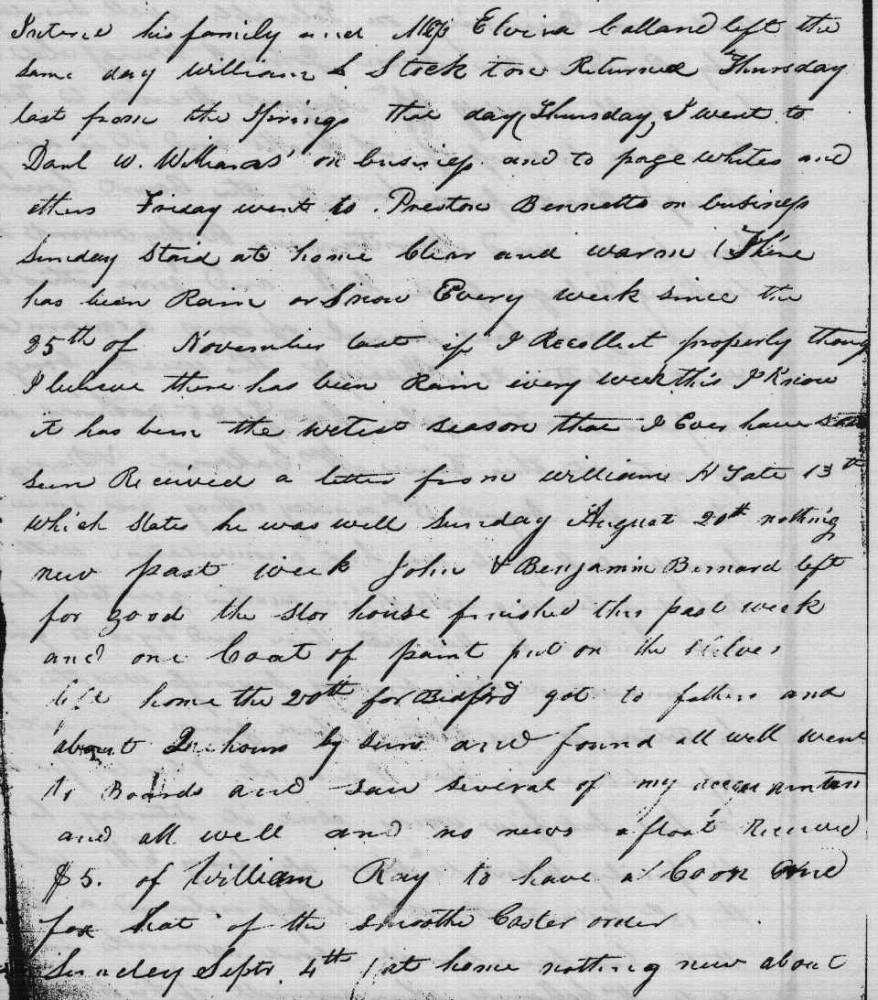 his family and Miss Elvira Calland left the
same day William S Stockton Returned Thursday
last from the Springs that day (Thursday) I went to
Danl W. Williams' on business and to page whites and
others Friday went to Preston Bennetts on business
Sunday Staid at home Clear and warm (There
has been Rain or Snow Every week since the
25th of November last if I Recollect properly thoug
I believe there has been Rain every week this I Know
it has been the wetest season that I Ever have
seen Received a letter from William H Tate 13th
which states he was well Sunday August 20th nothing
new past week John & Benjamin Bernard left
for good the stor house finished this past week
and one Coat of paint put on the shelves
left home the 20th for Bedford got to fathers and
about 2 hours by sun and found all well went
to Boards and saw several of my acquaintan
and all well and no news afloat Received
$5. of William Ray to have a Coon and
fox hat of the smoothe Caster order
Sunday Septr. 4th (at home nothing new about